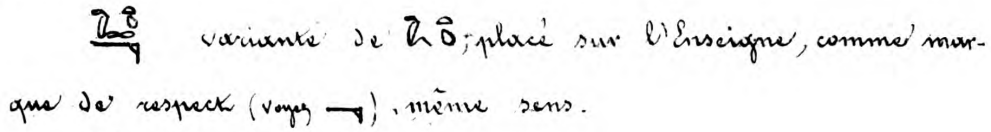 variante de ; placé sur l'Enseigne, comme mar-
que de respect (voyez ), même sens.